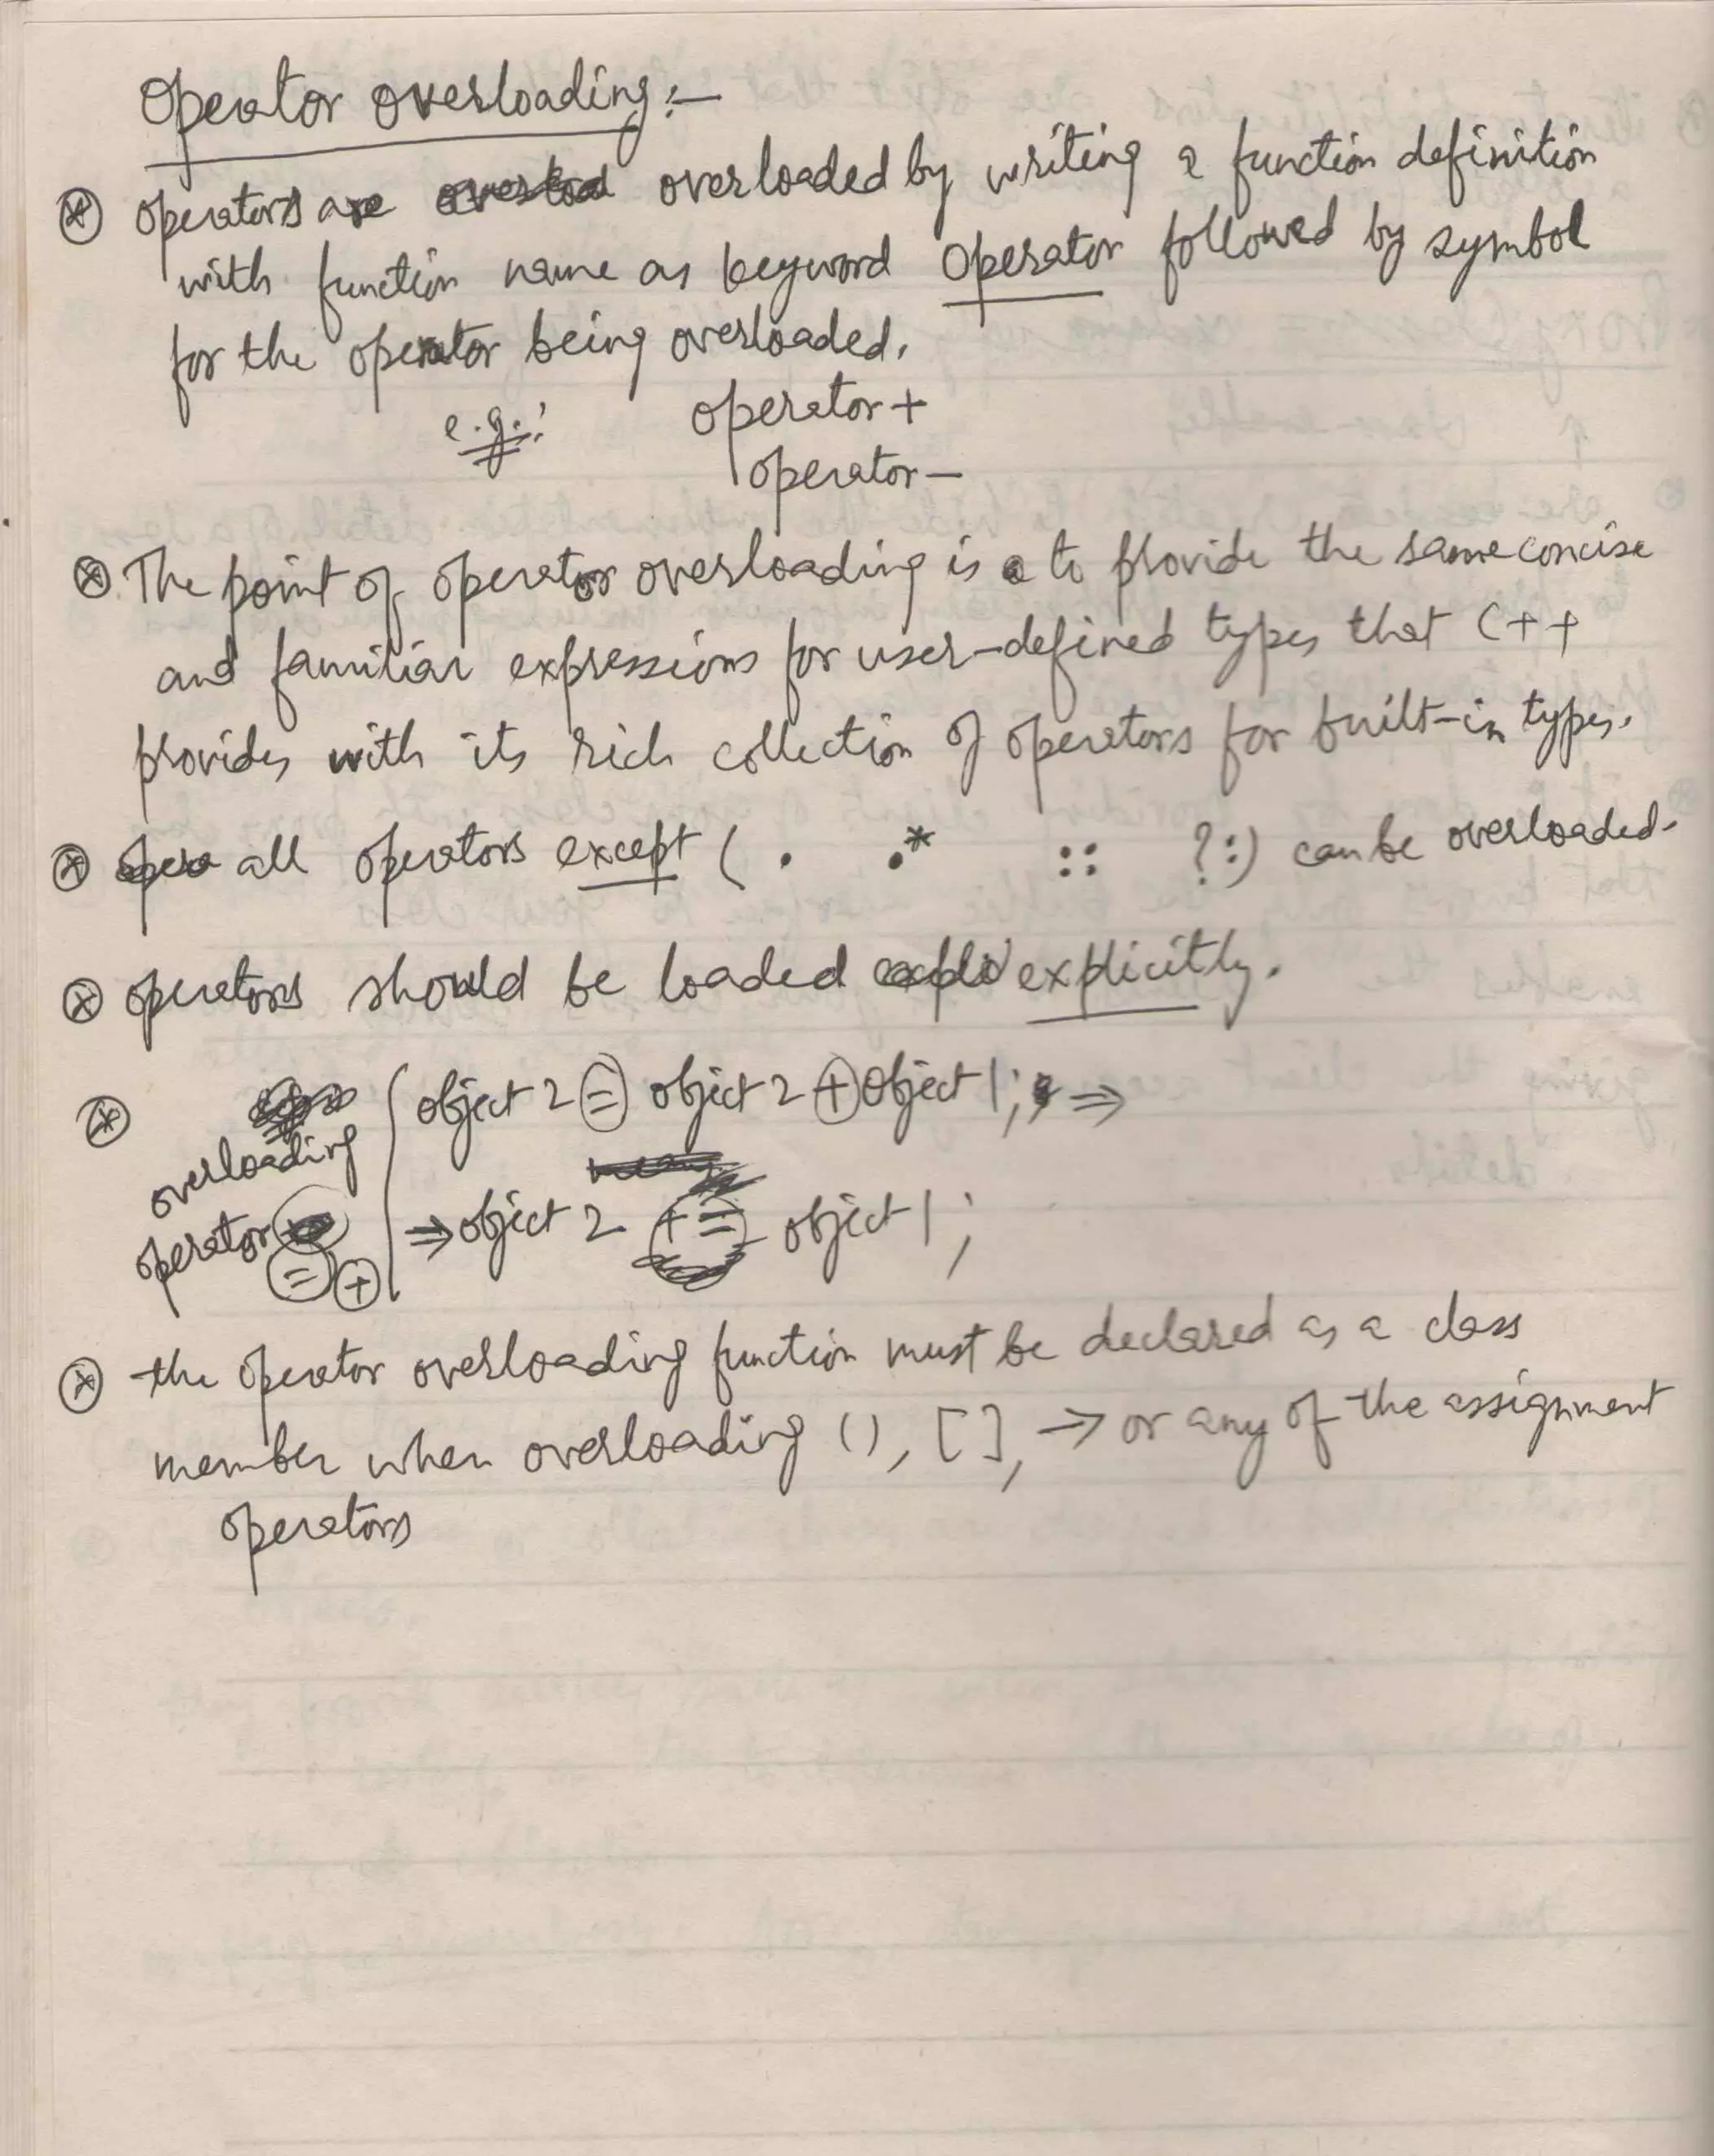 Operator overloading:-
⊛ operators are overload overloaded by writing a function definition
with function name as keyword operator followed by symbol
for the operator being overloaded.
e.g.: operator+
operator-
⊛ The point of operator overloading is to provide the same concise
and familiar expressions for user-defined types that C++
provides with its rich collection of operators for built-in types.
⊛ all operators except ( . .* :: ?:) can be overloaded.
⊛ operators should be loaded explicitly.
⊛ object 2 = object 2 + object 1; ⇒
overloading
⇒ object 2 += object 1;
operator
= +
⊛ the operator overloading function must be declared as a class
member when overloading (), [], → or any of the assignment
operators